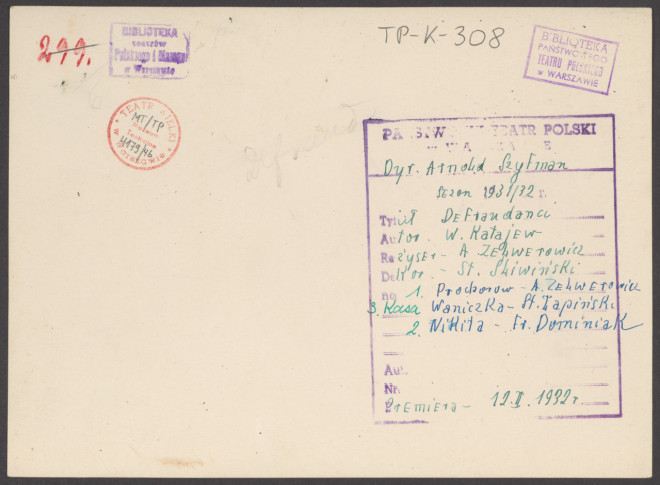 299.
BIBLIOTEKA
teatrów
Polskiego i
w Warszawie
TP-K-308
BIBLIOTEKA
PAŃSTWOWEGO
TEATRU POLSKIEGO
w WARSZAWIE
TEATR WIELKI
w Warszawie
MT/TP
Muzeum
Teatralne
PAŃSTWOWY TEATR POLSKI
Dyr. Arnold Szyfman
Sezon 1931/32 r.
Tytuł Defraudanci
Autor. W. Katajew
Reżyser - A Zelwerowicz
Dekor. - St. Śliwiński
no 1. Prochorow - A. Zelwerowicz
3. Kasa Waniczka - St. Łapiński
2. Nikita - Fr. Dominiak
Aut.
Nr.
Premiera - 12.II. 1932 r.